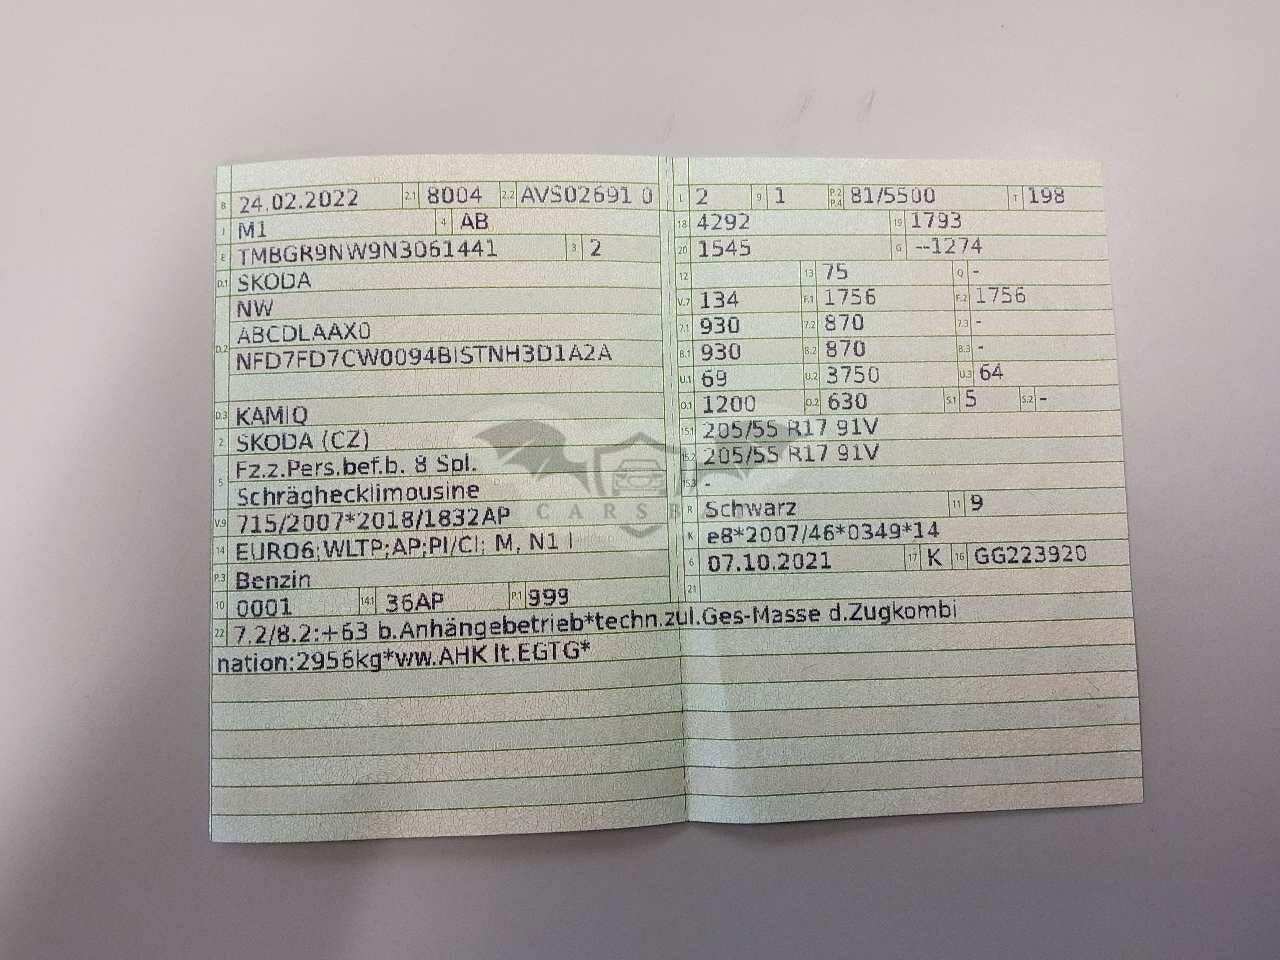 B 24.02.2022 2.1 8004 2.2 AVS02691 0
J M1 4 AB
E TMBGR9NW9N3061441 3 2
D.1 SKODA
NW
D.2 ABCDLAAX0
NFD7FD7CW0094BISTNH3D1A2A
D.3 KAMIQ
2 SKODA (CZ)
5 Fz.z.Pers.bef.b. 8 Spl.
Schräghecklimousine
V.9 715/2007*2018/1832AP
14 EURO6;WLTP;AP;PI/CI; M, N1 I
P.3 Benzin
10 0001 14.1 36AP P.1 999
L 2 9 1 P.2 P.4 81/5500 T 198
18 4292 19 1793
20 1545 G --1274
12 13 75 Q -
V.7 134 F.1 1756 F.2 1756
7.1 930 7.2 870 7.3 -
8.1 930 8.2 870 8.3 -
U.1 69 U.2 3750 U.3 64
O.1 1200 O.2 630 S.1 5 S.2 -
15.1 205/55 R17 91V
15.2 205/55 R17 91V
15.3 -
R Schwarz 11 9
K e8*2007/46*0349*14
6 07.10.2021 17 K 16 GG223920
21
22 7.2/8.2:+63 b.Anhängebetrieb*techn.zul.Ges-Masse d.Zugkombi
nation:2956kg*ww.AHK lt.EGTG*
CARSB